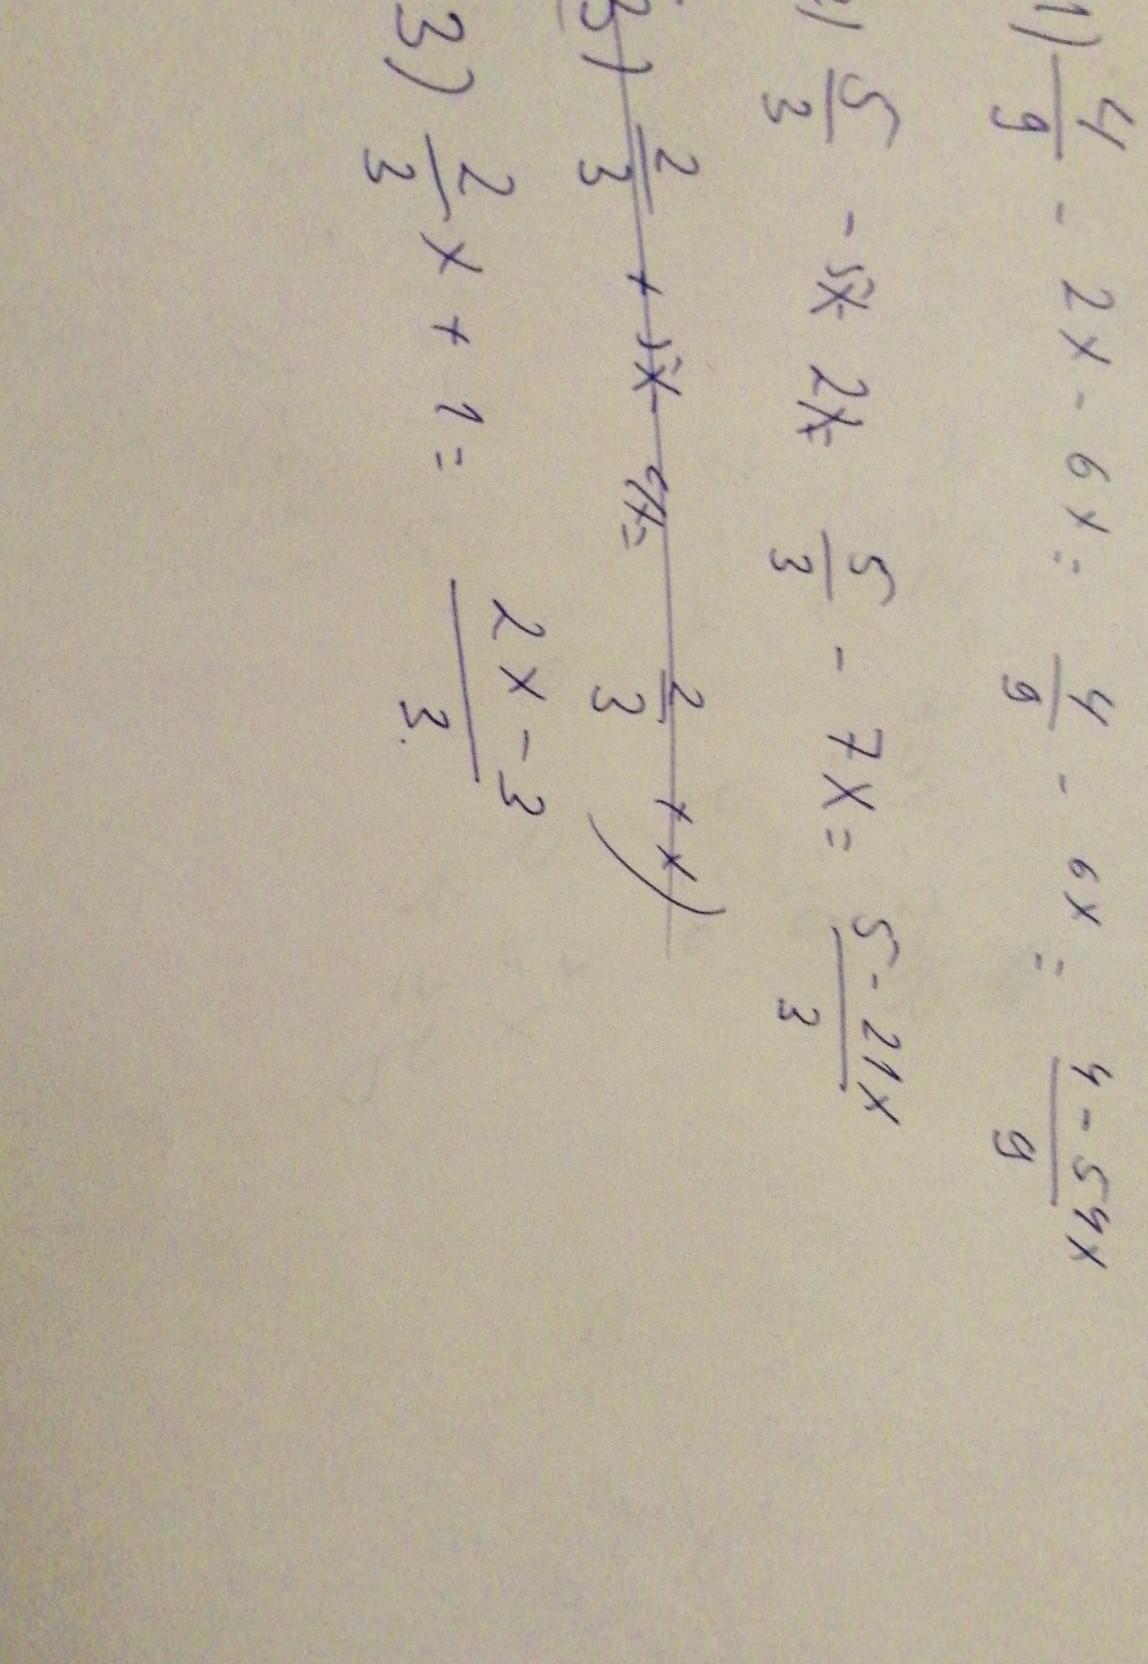 1) 4/9 - 2x - 6x = 4/9 - 6x = 4 - 54x/9
2) 5/3 - 5x - 2x = 5/3 - 7x = 5 - 21x/3
3) 2/3 + 5x - 4x = 2/3 + x)
3) 2/3 x + 1 = 2x - 3/3